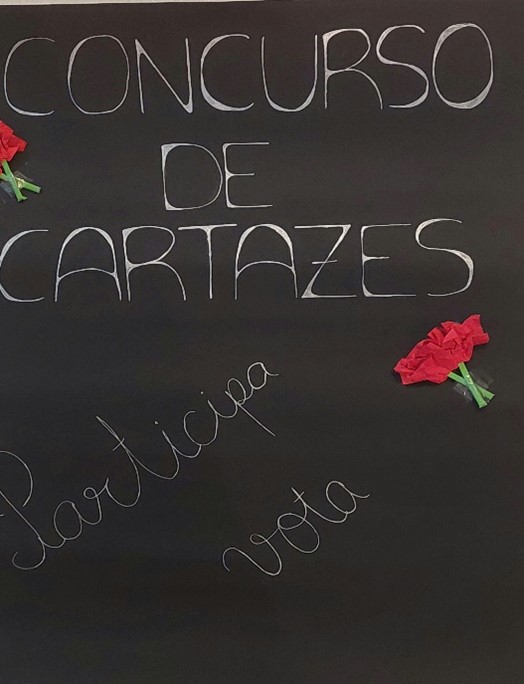 CONCURSO
DE
CARTAZES
Participa
vota